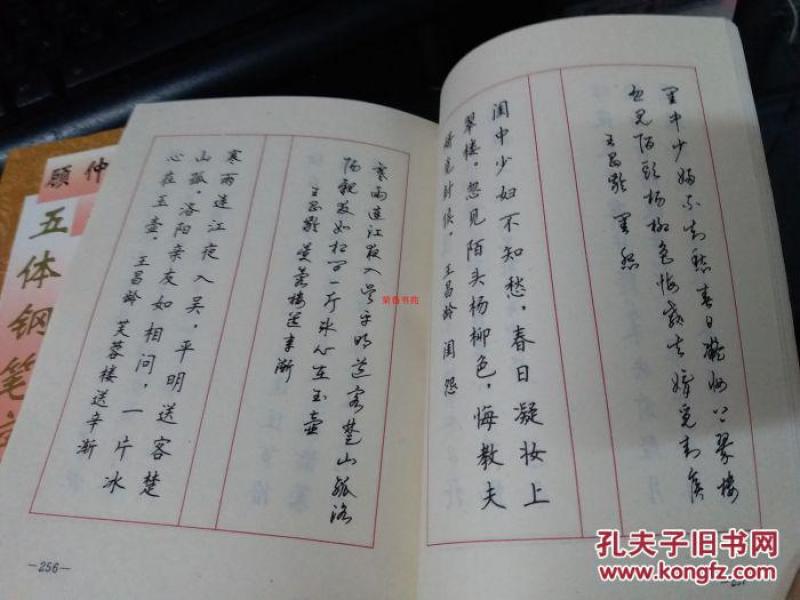 里中少妇不知愁春日凝妆上翠楼
忽见陌头杨柳色悔教夫婿觅封侯
王昌龄 闺怨
闺中少妇不知愁，春日凝妆上
翠楼。忽见陌头杨柳色，悔教夫
婿觅封侯。王昌龄 闺怨
寒雨连江夜入吴平明送客楚山孤洛
阳亲友如相问一片冰心在玉壶
王昌龄 芙蓉楼送辛渐
寒雨连江夜入吴，平明送客楚
山孤。洛阳亲友如相问，一片冰
心在玉壶。王昌龄 芙蓉楼送辛渐
—256—
顾仲
五体钢笔
荣鲁书苑
孔夫子旧书网
www.kongfz.com